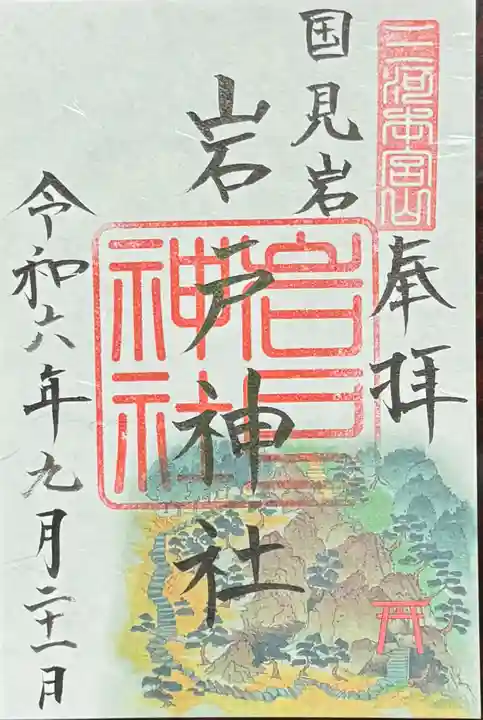 三河本宮山
奉拝
国見岩
岩戸神社
岩戸
神社
令和六年九月二十一日